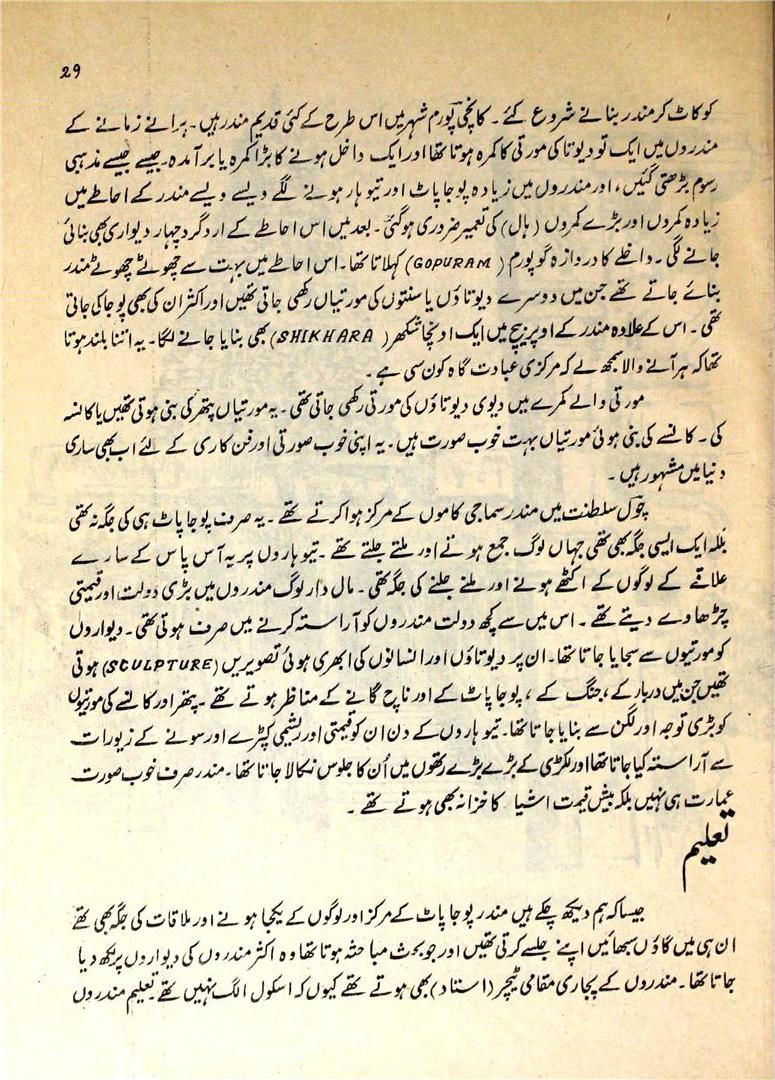 29
کو کاٹ کر مندر بنانے شروع کئے ۔ کانچی پورم شہر میں اس طرح کے کئی قدیم مندر ہیں ۔ پرانے زمانے کے
مندروں میں ایک تو دیوتا کی مورتی کا کمرہ ہوتا تھا اور ایک داخل ہونے کا بڑا کمرہ یا برآمدہ ۔ جیسے جیسے مذہبی
رسوم بڑھتی گئیں، اور مندروں میں زیادہ پوجا پاٹ اور تیوہار ہونے لگے ویسے ویسے مندر کے احاطے میں
زیادہ کمروں اور بڑے کمروں (ہال) کی تعمیر ضروری ہوگئی ۔ بعد میں اس احاطے کے ارد گرد چہار دیواری بھی بنائی
جانے لگی ۔ داخلے کا دروازہ گوپورم (GOPURAM) کہلاتا تھا ۔ اس احاطے میں بہت سے چھوٹے چھوٹے مندر
بنائے جاتے تھے جن میں دوسرے دیوتاؤں یا سنتوں کی مورتیاں رکھی جاتی تھیں اور اکثر ان کی بھی پوجا کی جاتی
تھی ۔ اس کے علاوہ مندر کے اوپر بیچ میں ایک اونچا شکھر (SHIKHARA) بھی بنایا جانے لگا ۔ یہ اتنا بلند ہوتا
تھا کہ ہر آنے والا سمجھ لے کہ مرکزی عبادت گاہ کون سی ہے ۔
مورتی والے کمرے میں دیوی دیوتاؤں کی مورتی رکھی جاتی تھی ۔ یہ مورتیاں پتھر کی بنی ہوتی تھیں یا کانسہ
کی ۔ کانسے کی بنی ہوئی مورتیاں بہت خوب صورت ہیں ۔ یہ اپنی خوب صورتی اور فن کاری کے لئے اب بھی ساری
دنیا میں مشہور ہیں ۔
چول سلطنت میں مندر سماجی کاموں کے مرکز ہوا کرتے تھے ۔ یہ صرف پوجا پاٹ ہی کی جگہ نہ تھی
بلکہ ایک ایسی جگہ بھی تھی جہاں لوگ جمع ہوتے اور ملتے جلتے تھے ۔ تیوہاروں پر یہ آس پاس کے سارے
علاقے کے لوگوں کے اکٹھے ہونے اور ملنے جلنے کی جگہ تھی ۔ مال دار لوگ مندروں میں بڑی دولت اور قیمتی
چڑھاوے دیتے تھے ۔ اس میں سے کچھ دولت مندروں کو آراستہ کرنے میں صرف ہوتی تھی ۔ دیواروں
کو مورتیوں سے سجایا جاتا تھا ۔ ان پر دیوتاؤں اور انسانوں کی ابھری ہوئی تصویریں (SCULPTURE) ہوتی
تھیں جن میں دربار کے، جنگ کے، پوجا پاٹ کے اور ناچ گانے کے مناظر ہوتے تھے ۔ پتھر اور کانسے کی مورتیوں
کو بڑی توجہ اور لگن سے بنایا جاتا تھا ۔ تیوہاروں کے دن ان کو قیمتی اور ریشمی کپڑے اور سونے کے زیورات
سے آراستہ کیا جاتا تھا اور لکڑی کے بڑے بڑے رتھوں میں اُن کا جلوس نکالا جاتا تھا ۔ مندر صرف خوب صورت
عمارت ہی نہیں بلکہ بیش قیمت اشیا کا خزانہ بھی ہوتے تھے ۔
تعلیم
جیسا کہ ہم دیکھ چکے ہیں مندر پوجا پاٹ کے مرکز اور لوگوں کے یکجا ہونے اور ملاقات کی جگہ بھی تھے
ان ہی میں گاؤں سبھائیں اپنے جلسے کرتی تھیں اور جو بحث مباحثہ ہوتا تھا وہ اکثر مندروں کی دیواروں پر لکھ دیا
جاتا تھا ۔ مندروں کے پجاری مقامی ٹیچر (استاد) بھی ہوتے تھے کیوں کہ اسکول الگ نہیں تھے ۔ تعلیم مندروں